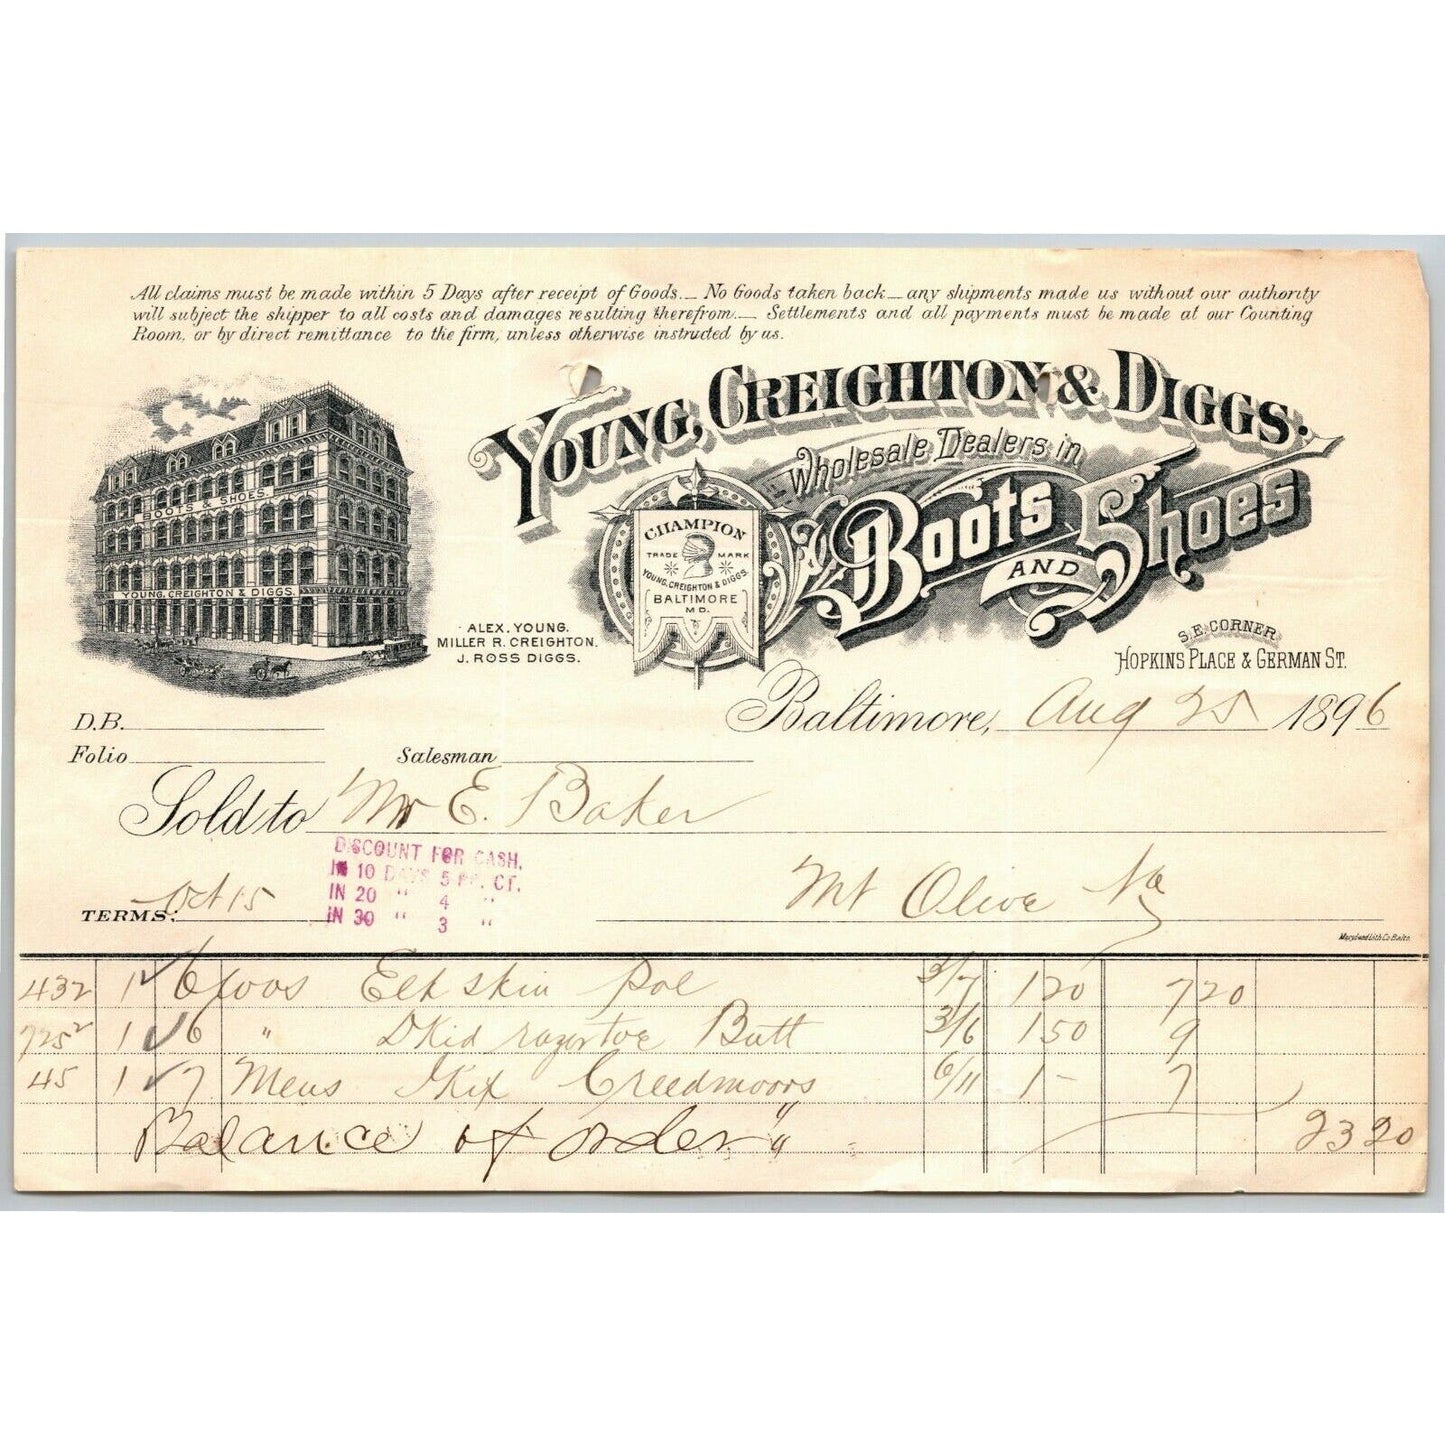 All claims must be made within 5 Days after receipt of Goods. — No Goods taken back — any shipments made us without our authority
will subject the shipper to all costs and damages resulting therefrom. — Settlements and all payments must be made at our Counting
Room, or by direct remittance to the firm, unless otherwise instructed by us.
YOUNG, CREIGHTON & DIGGS.
Wholesale Dealers in
Boots AND Shoes
BOOTS & SHOES.
YOUNG, CREIGHTON & DIGGS.
CHAMPION
TRADE MARK
YOUNG, CREIGHTON & DIGGS.
BALTIMORE
MD.
ALEX. YOUNG.
MILLER R. CREIGHTON.
J. ROSS DIGGS.
S.E. CORNER
HOPKINS PLACE & GERMAN ST.
Baltimore, Aug 25 1896
D.B.
Folio Salesman
Sold to Mr E. Baker
DISCOUNT FOR CASH.
IN 10 DAYS 5 PR. CT.
IN 20 " 4 "
IN 30 " 3 "
Mt Olive Va
TERMS: Oct 15
Maryland Lith Co Balto.
432 1 6 Elk skin Pol 3/7 120 7 20
725² 1 6 " D Kid razor toe Butt 3/6 150 9
45 1 7 Mens Creedmoors 6/11 1 - 7
Balance of order " 23 20